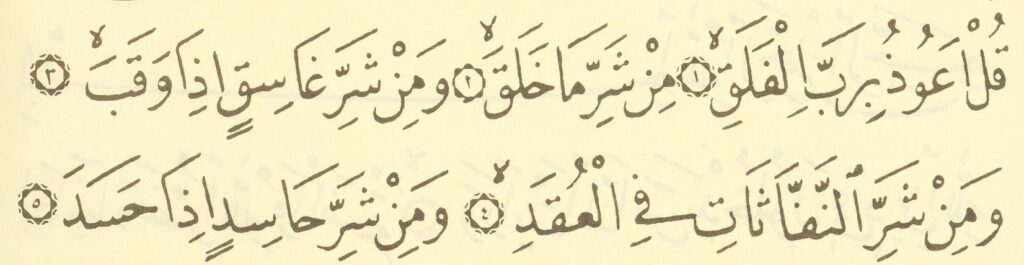 قُلْ اَعُوذُ بِرَبِّ الْفَلَقِۙ ﴿١﴾ مِنْ شَرِّ مَا خَلَقَۙ ﴿٢﴾ وَمِنْ شَرِّ غَاسِقٍ اِذَا وَقَبَۙ ﴿٣﴾
وَمِنْ شَرِّ النَّفَّاثَاتِ فِي الْعُقَدِۙ ﴿٤﴾ وَمِنْ شَرِّ حَاسِدٍ اِذَا حَسَدَ ﴿٥﴾